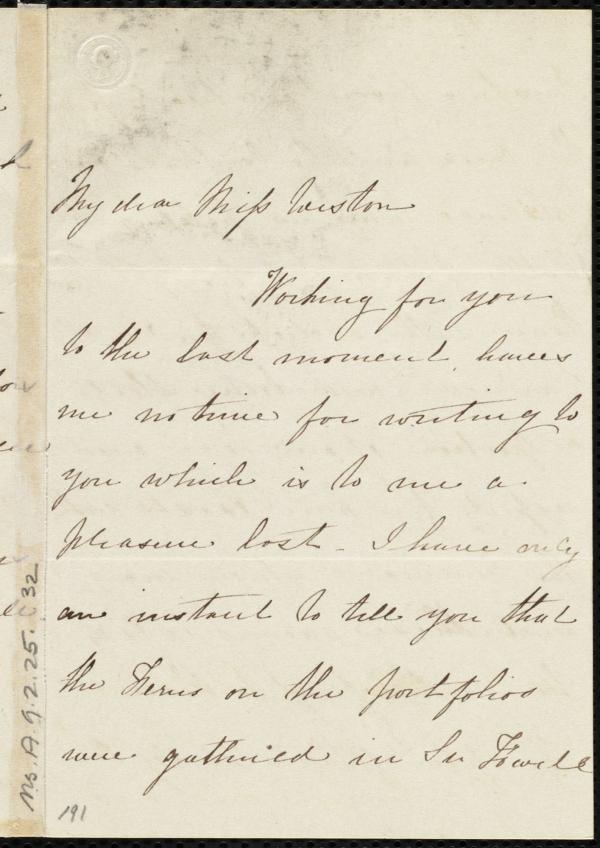 My dear Miss Weston
Working for you
to the last moment, leaves
me no time for writing to
you which is to me a
pleasure lost - I have only
an instant to tell you that
the Ferns on the portfolios
were gathered in Sir Fowell
Ms. A. 9. 2. 25. 32
191